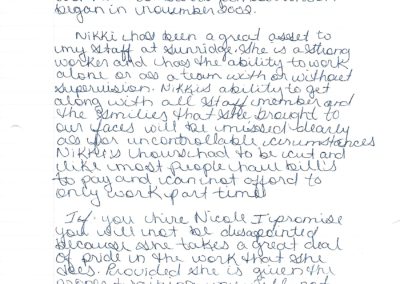 began in november 2002.
Nikki has been a great asset to
my staff at Sunridge. She is a strong
worker and has the ability to work
alone or as a team with or without
supervision. Nikki's ability to get
along with all staff member and
the smilies that she brought to
our faces will be missed dearly
as for uncontrollable circumstances
Nikki's hours had to be cut and
like most people have bills
to pay and can not afford to
only work part time.
If you hire Nicole I promise
you will not be disapointed
because she takes a great deal
of pride in the work that she
does. Provided she is given the
proper training you will not